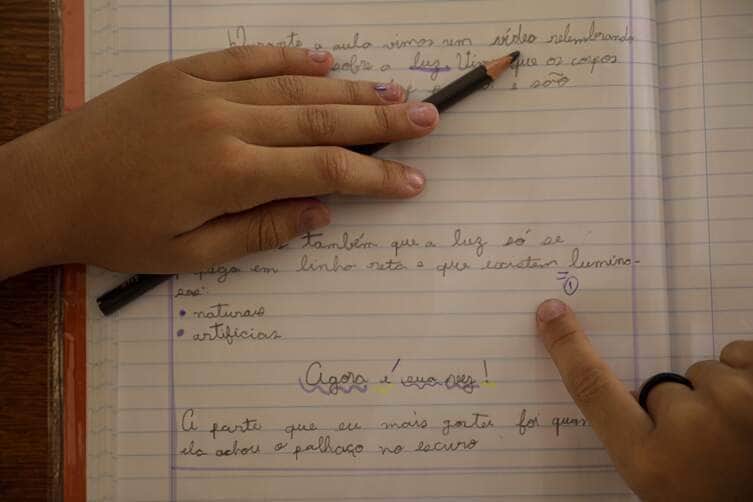 b) Durante a aula vimos um vídeo relembrando
sobre a luz. Vimos que os corpos
e são
também que a luz só se
paga em linha reta e que existem lumino-
sos:
= 1
• naturais
• artificias
Agora é sua vez!
A parte que eu mais gostei foi quan
ela achou o palhaço no escuro